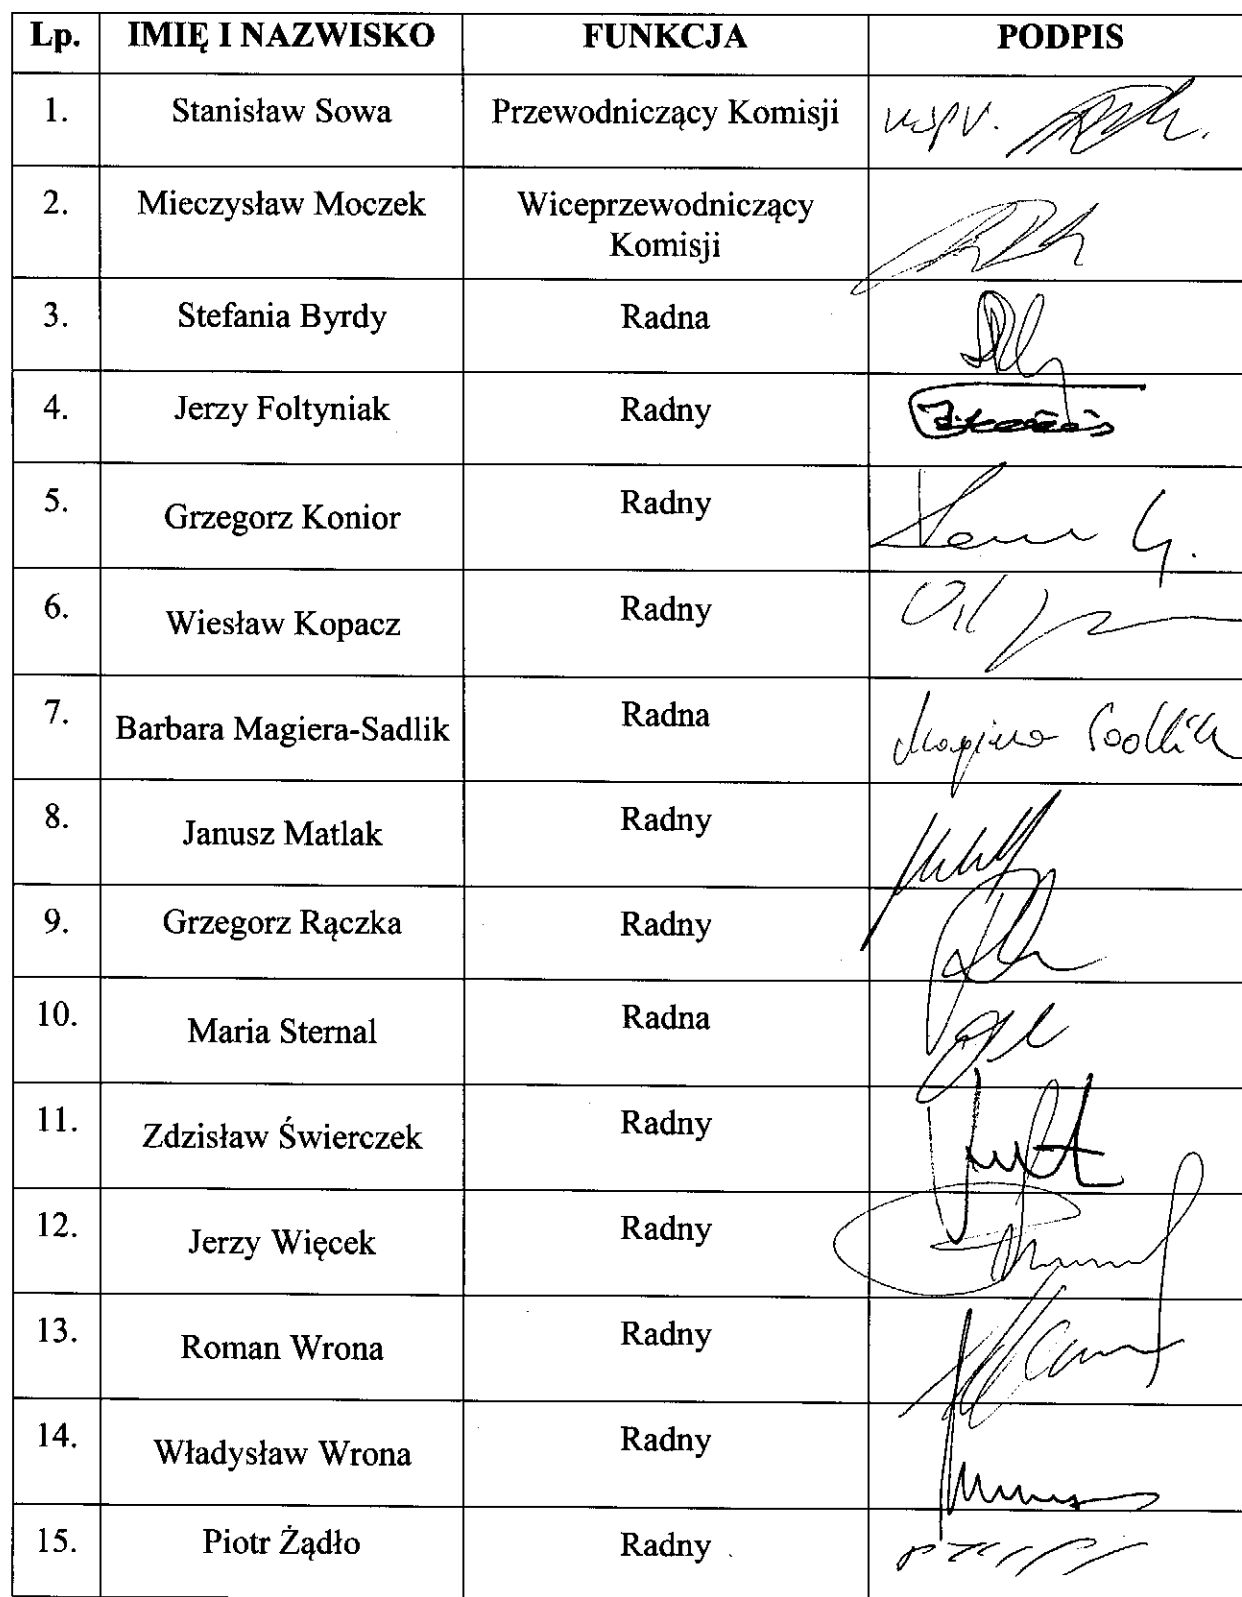 Lp. IMIĘ I NAZWISKO FUNKCJA PODPIS
1. Stanisław Sowa Przewodniczący Komisji
2. Mieczysław Moczek Wiceprzewodniczący
Komisji
3. Stefania Byrdy Radna
4. Jerzy Foltyniak Radny
5. Grzegorz Konior Radny
6. Wiesław Kopacz Radny
7. Barbara Magiera-Sadlik Radna Magiera Sadlik
8. Janusz Matlak Radny
9. Grzegorz Rączka Radny
10. Maria Sternal Radna
11. Zdzisław Świerczek Radny
12. Jerzy Więcek Radny
13. Roman Wrona Radny
14. Władysław Wrona Radny
15. Piotr Żądło Radny